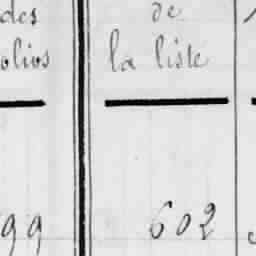 des
olios
de
la liste
99
602